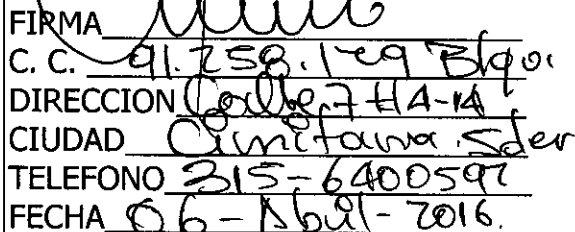 FIRMA
C. C. 91.258.129 Blqo.
DIRECCION Calle 7 #4-14
CIUDAD Cimitarra. Sder
TELEFONO 315-6400597
FECHA 06-Abril-2016.